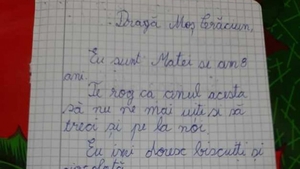 - Dragă Moș Crăciun,
Eu sunt Matei si am 8
ani.
Te rog ca anul acesta
să nu ne mai uiti si să
treci și pe la noi.
Eu imi doresc biscuiti și
ciocolată